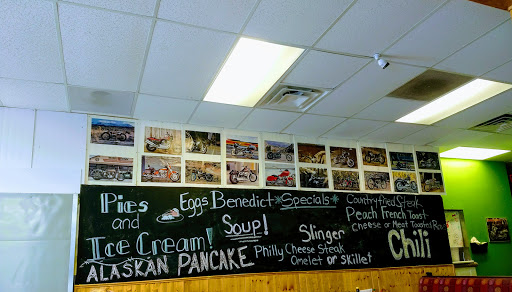 Pies
and
Ice Cream!
ALASKAN PANCAKE
Eggs Benedict *Specials*
Soup!
Slinger
Philly Cheese Steak
Omelet or Skillet
Country Fried Steak
Peach French Toast
Cheese or Meat Toasted Rav
Chili